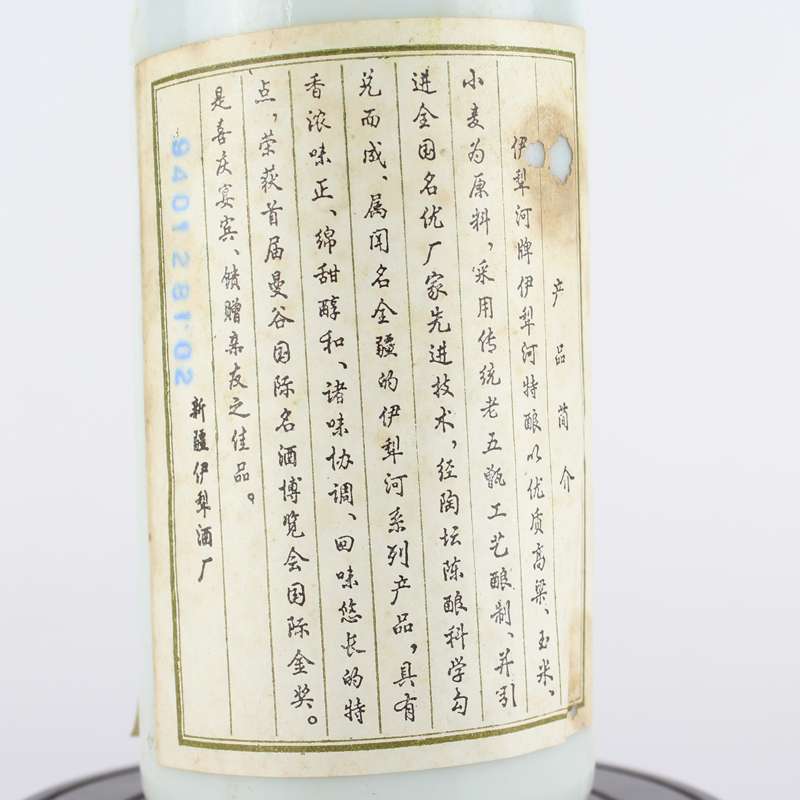 产品简介
伊犁河牌伊犁河特酿以优质高粱、玉米、
小麦为原料，采用传统老五甑工艺酿制、并引
进全国名优厂家先进技术，经陶坛陈酿科学勾
兑而成、属闻名全疆的伊犁河系列产品，具有
香浓味正、绵甜醇和、诸味协调、回味悠长的特
点，荣获首届曼谷国际名酒博览会国际金奖。
是喜庆宴宾、馈赠亲友之佳品。
新疆伊犁酒厂
9401 28102